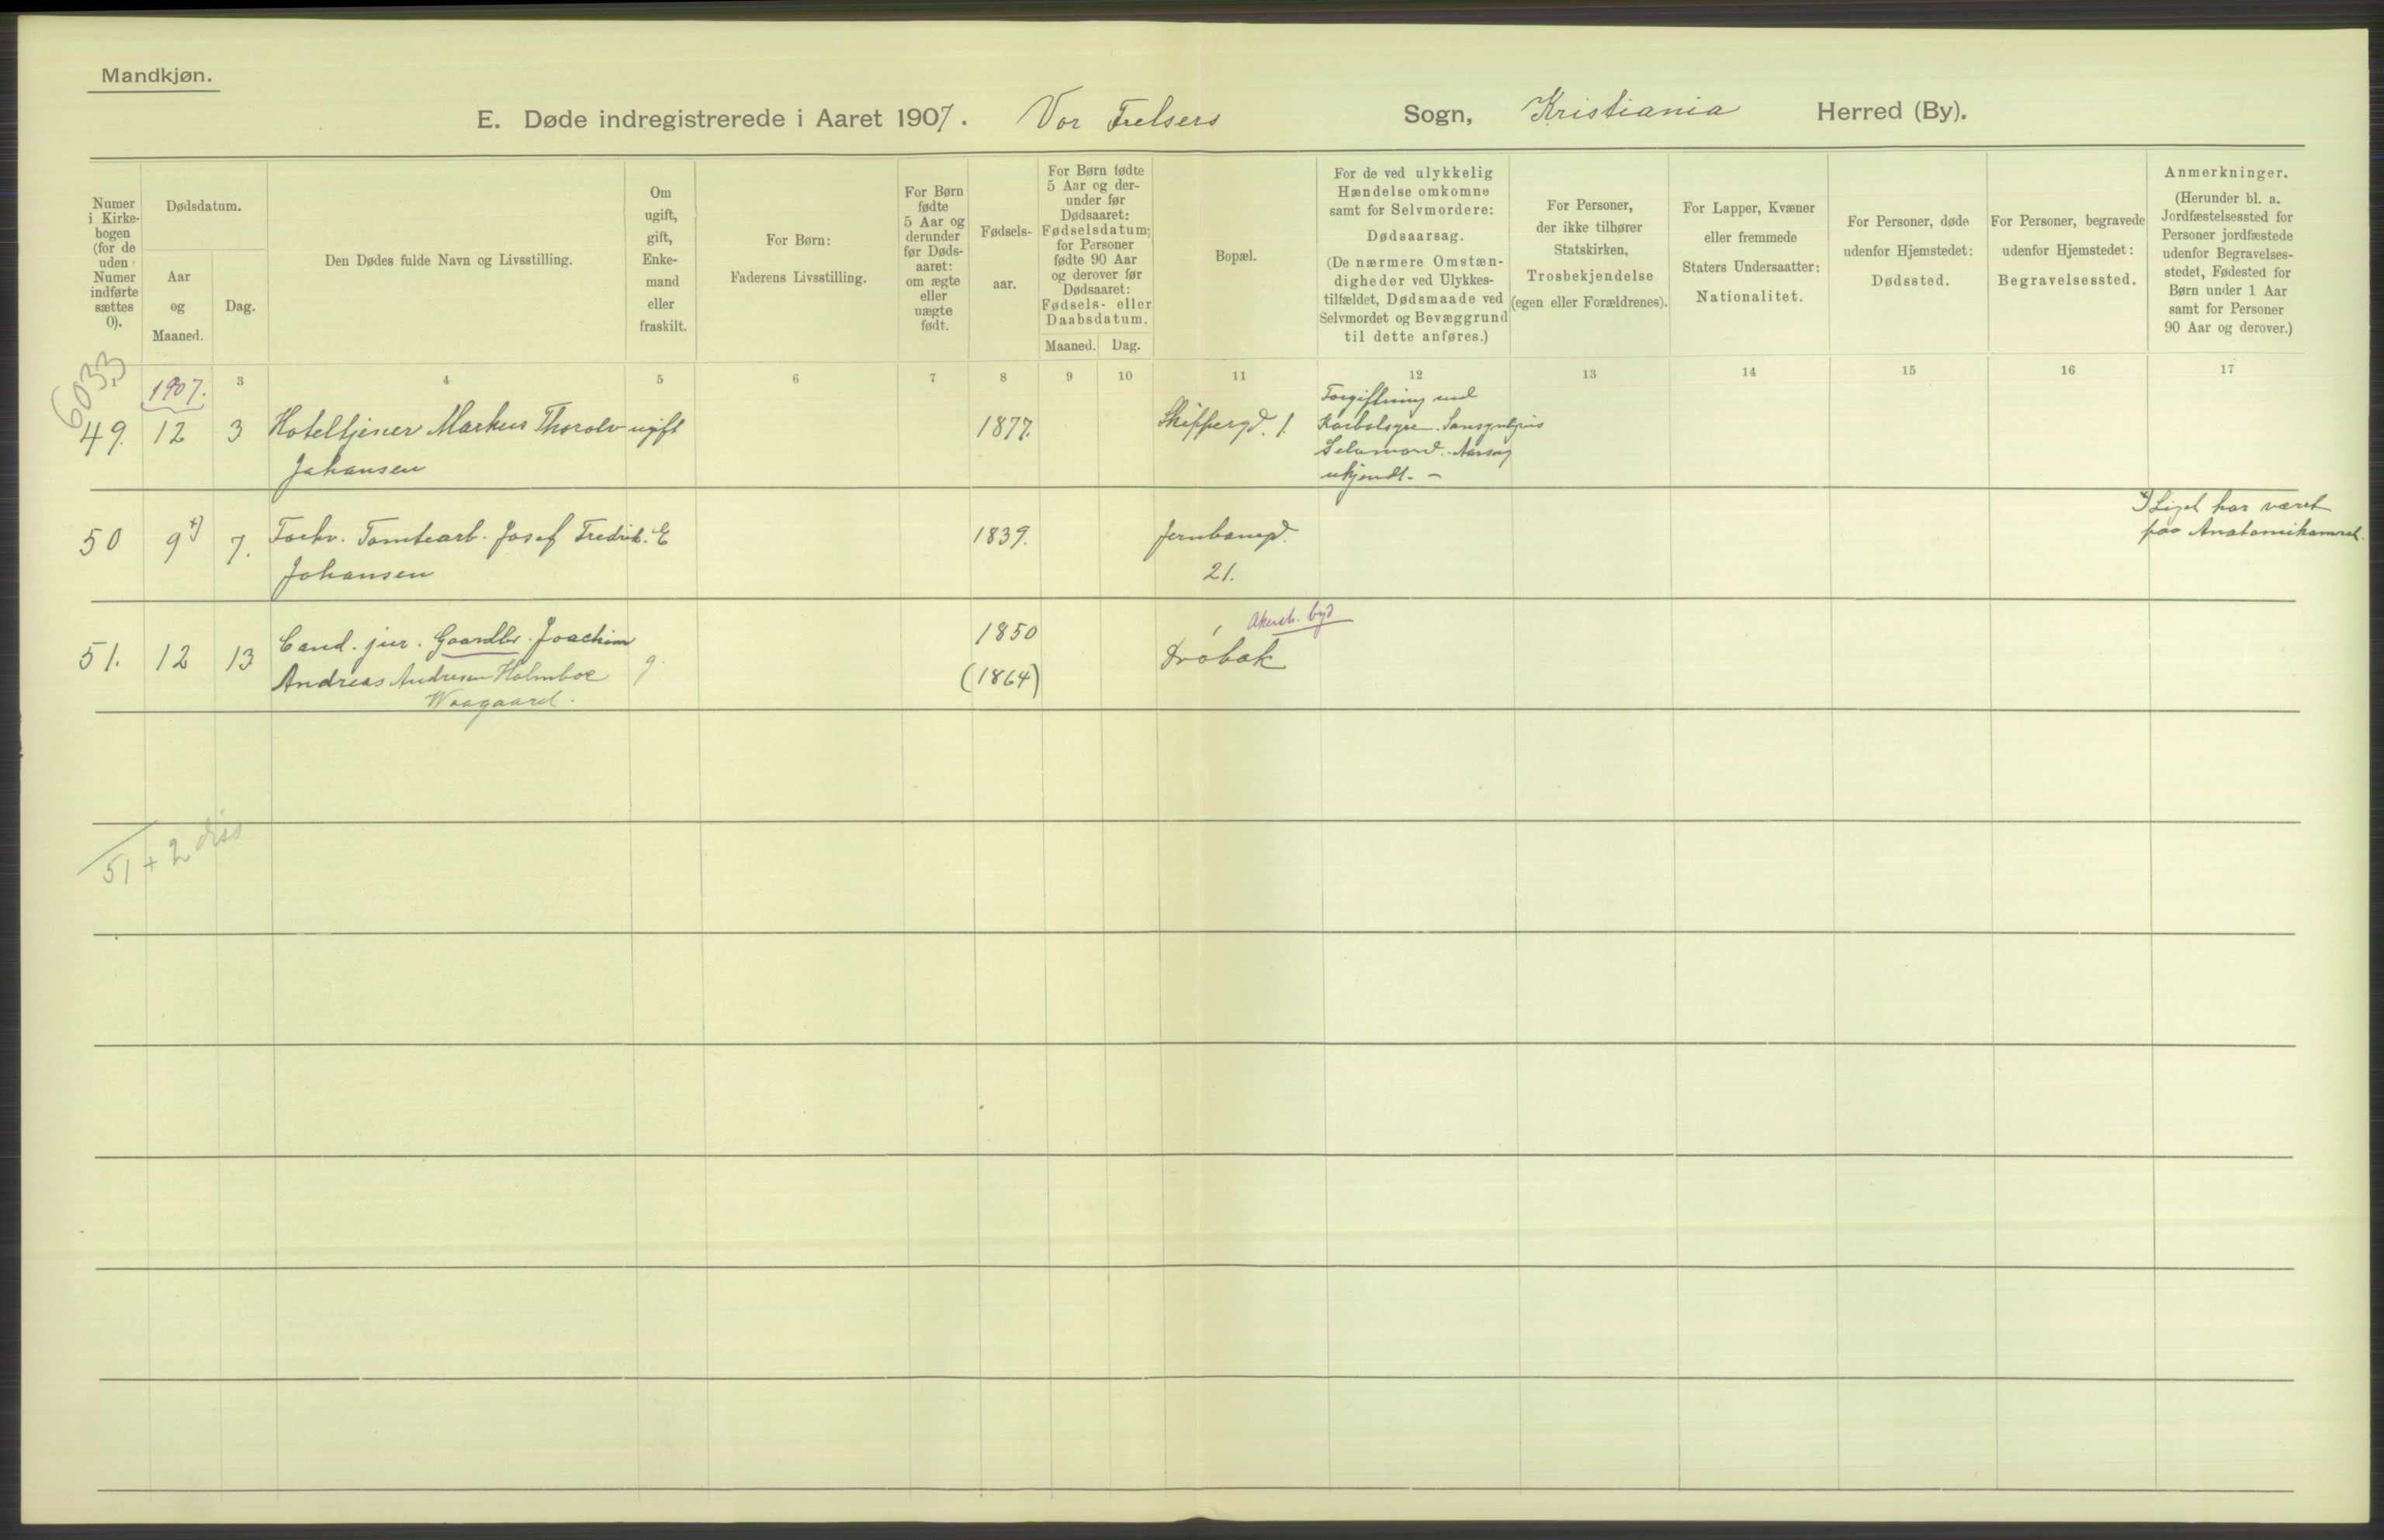 Mandkjøn.
E. Døde indregistrerede i Aaret 1907. Vor Frelsers Sogn, Kristiania Herred (By).
Numer
i Kirke-
bogen
(for de
uden
Numer
indførte
sættes
0).
Dødsdatum.
Aar
og
Maaned.
Dag.
Den Dødes fulde Navn og Livsstilling.
Om
ugift,
gift,
Enke-
mand
eller
fraskilt.
For Børn:
Faderens Livsstilling.
For Børn
fødte
5 Aar og
derunder
før Døds-
aaret:
om ægte
eller
uægte
født.
Fødsels-
aar.
For Børn fødte
5 Aar og der-
under før
Dødsaaret:
Fødselsdatum;
for Personer
fødte 90 Aar
og derover før
Dødsaaret:
Fødsels- eller
Daabsdatum.
Maaned. Dag.
Bopæl.
For de ved ulykkelig
Hændelse omkomne
samt for Selvmordere:
Dødsaarsag.
(De nærmere Omstæn-
digheder ved Ulykkes-
tilfældet, Dødsmaade ved
Selvmordet og Bevæggrund
til dette anføres.)
For Personer,
der ikke tilhører
Statskirken,
Trosbekjendelse
(egen eller Forældrenes).
For Lapper, Kvæner
eller fremmede
Staters Undersaatter:
Nationalitet.
For Personer, døde
udenfor Hjemstedet:
Dødssted.
For Personer, begravede
udenfor Hjemstedet:
Begravelsessted.
Anmerkninger.
(Herunder bl. a.
Jordfæstelsessted for
Personer jordfæstede
udenfor Begravelses-
stedet, Fødested for
Børn under 1 Aar
samt for Personer
90 Aar og derover.)
1 3 4 5 6 7 8 9 10 11 12 13 14 15 16 17
6033
1907.
49. 12 3 Hoteltjener Markus Thorolv ugift 1877. Skippergd. 1.
Johansen
Forgiftning med
Karbolsyre. Sansynligvis
Selvmord. Aarsag
ukjendt. –
50 9 x) 7. Forhv. Tomtearb. Josef Fredrik E 1839. Jernbanegd.
Johansen 21.
x) Liget har været
paa Anatomikamret.
51. 12 13 Cand. jur. Gaardbr. Joachim g. 1850 Akersh. byd
Andreas Andresen Holmboe (1864) Drøbak
Waagaard.
51 + 2 diss